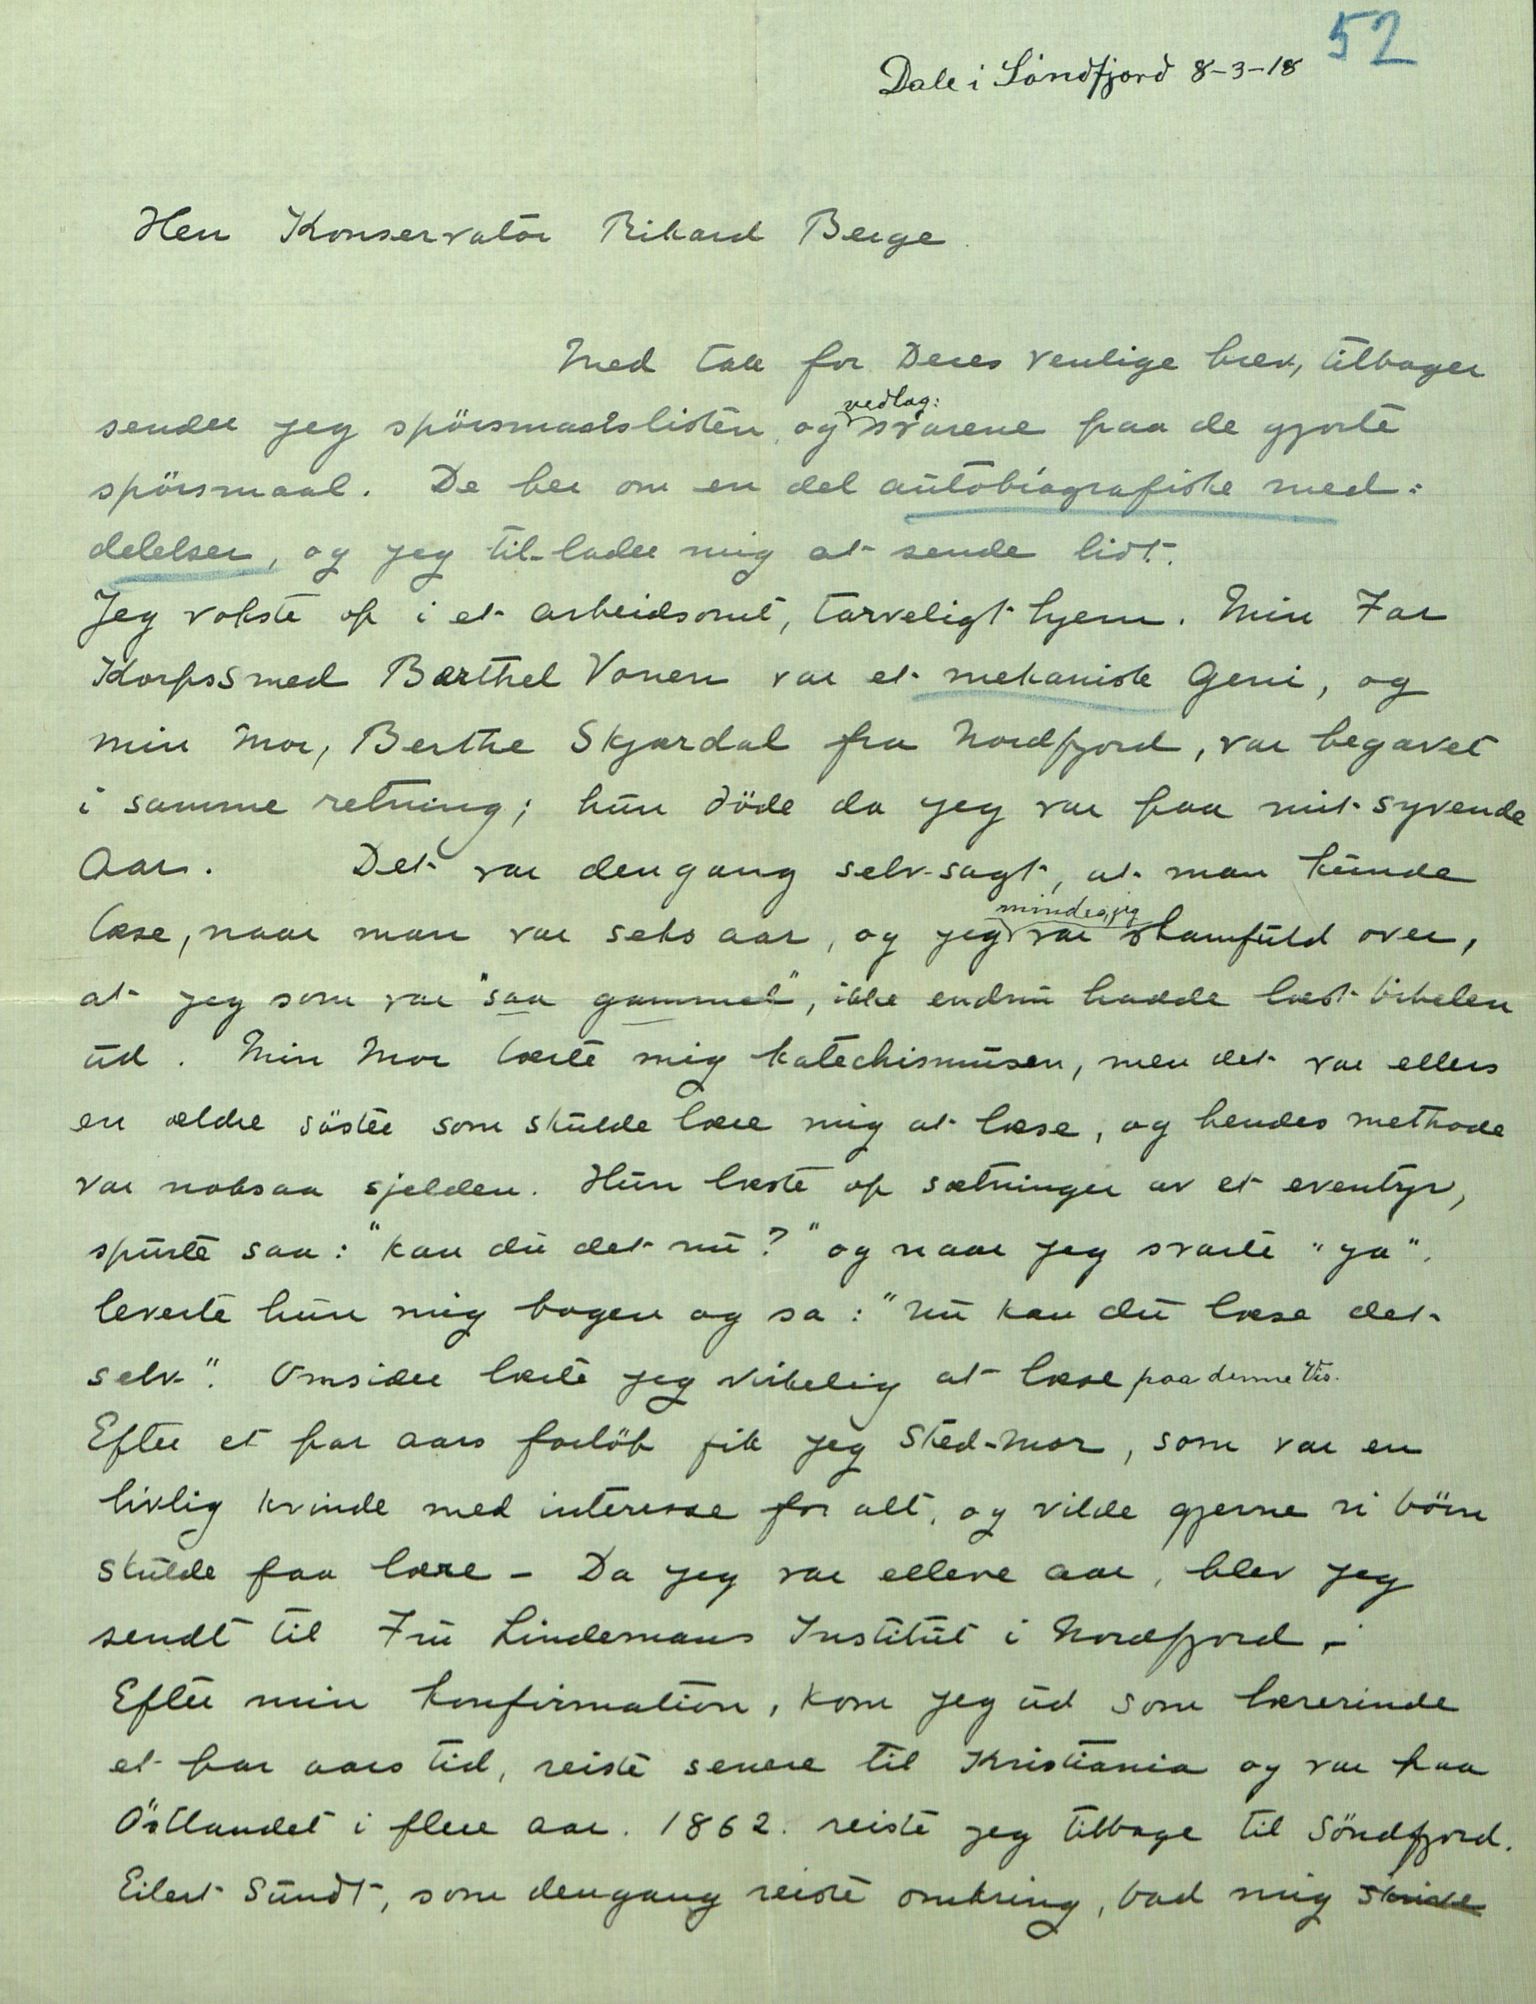 52
Dale i Söndfjord 8-3-18
Herr Konservator Rikard Berge
Med tak for Deres venlige brev, tilbager
sender jeg spörsmaalslisten og vedlag: svarene paa de gjorte
spörsmaal. De ber om en del autobiografiske med:
delelser, og jeg til-lader mig at sende lidt.
Jeg vokste op i et arbeidsomt, tarveligt hjem. Min Far
Korpssmed Barthel Vonen var et mekanisk Geni, og
min Mor, Berthe Skjærdal fra Nordfjord, var begavet
i samme retning; hun döde da jeg var paa mit syvende
Aar. Det var dengang selv-sagt, at man kunde
læse, naar man var seks aar, og jeg mindes, jeg var skamfuld over,
at jeg som var "saa gammel", ikke endnu hadde læst bibelen
ud. Min Mor lærte mig katechismusen, men det var ellers
en ældre söster som skulde lære mig at læse, og hendes methode
var noksaa sjelden. Hun læste op sætninger av et eventyr,
spurte saa: "kan du det nu?" og naar jeg svarte "ja".
leverte hun mig bogen og sa: "Nu kan du læse det
selv". Omsider lærte jeg virkelig at læse paa denne vis.
Efter et par aars forlöb fik jeg Sted-Mor, som var en
livlig kvinde med interesse for alt, og vilde gjerne vi börn
skulde faa lære - Da jeg var elleve aar, blev jeg
sendt til Fru Lindemans Institut i Nordfjord. -
Efter min konfirmation, kom jeg ud som lærerinde
et par aars tid, reiste senere til Kristiania og var paa
Östlandet i flere aar. 1862. reiste jeg tilbage til Söndfjord.
Eilert Sundt, som dengang reiste omkring, bad mig skrive